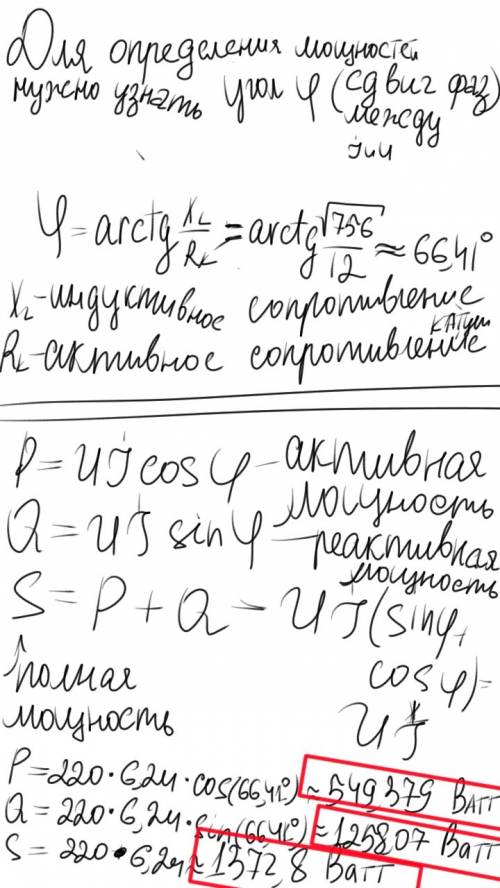 Для определения мощностей
нужно узнать угол φ (сдвиг фаз)
между
I и U
φ = arctg X_L/R_K = arctg √756/12 ≈ 66,41°
X_L - индуктивное сопротивление
R_K - активное сопротивление
P = UI cos φ - активная
мощность
Q = UI sin φ - реактивная
мощность
S = P + Q = UI (sin φ +
cos φ) =
UI
полная
мощность
P = 220 · 6,24 · cos(66,41°) ≈ 549,379 Ватт
Q = 220 · 6,24 · sin(66,41°) ≈ 1258,07 Ватт
S = 220 · 6,24 ≈ 1372,8 Ватт